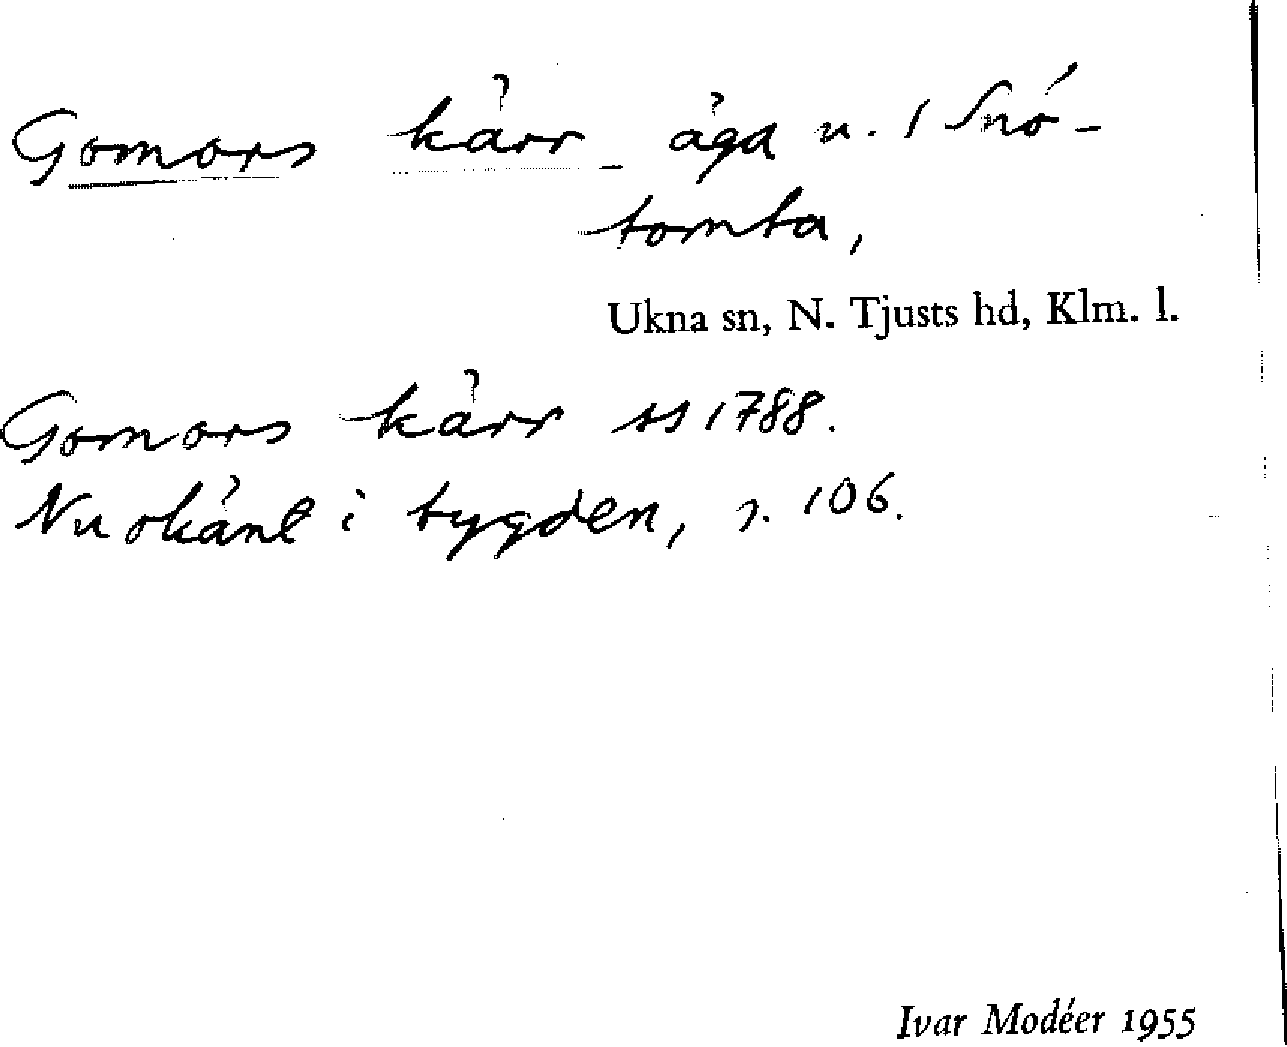 Gomors kärr äga u. 1 Snö-
tomta,
Ukna sn, N. Tjusts hd, Klm. l.
Gomors kärr ss 1788.
Nu okänt i bygden, s. 106.
Ivar Modéer 1955